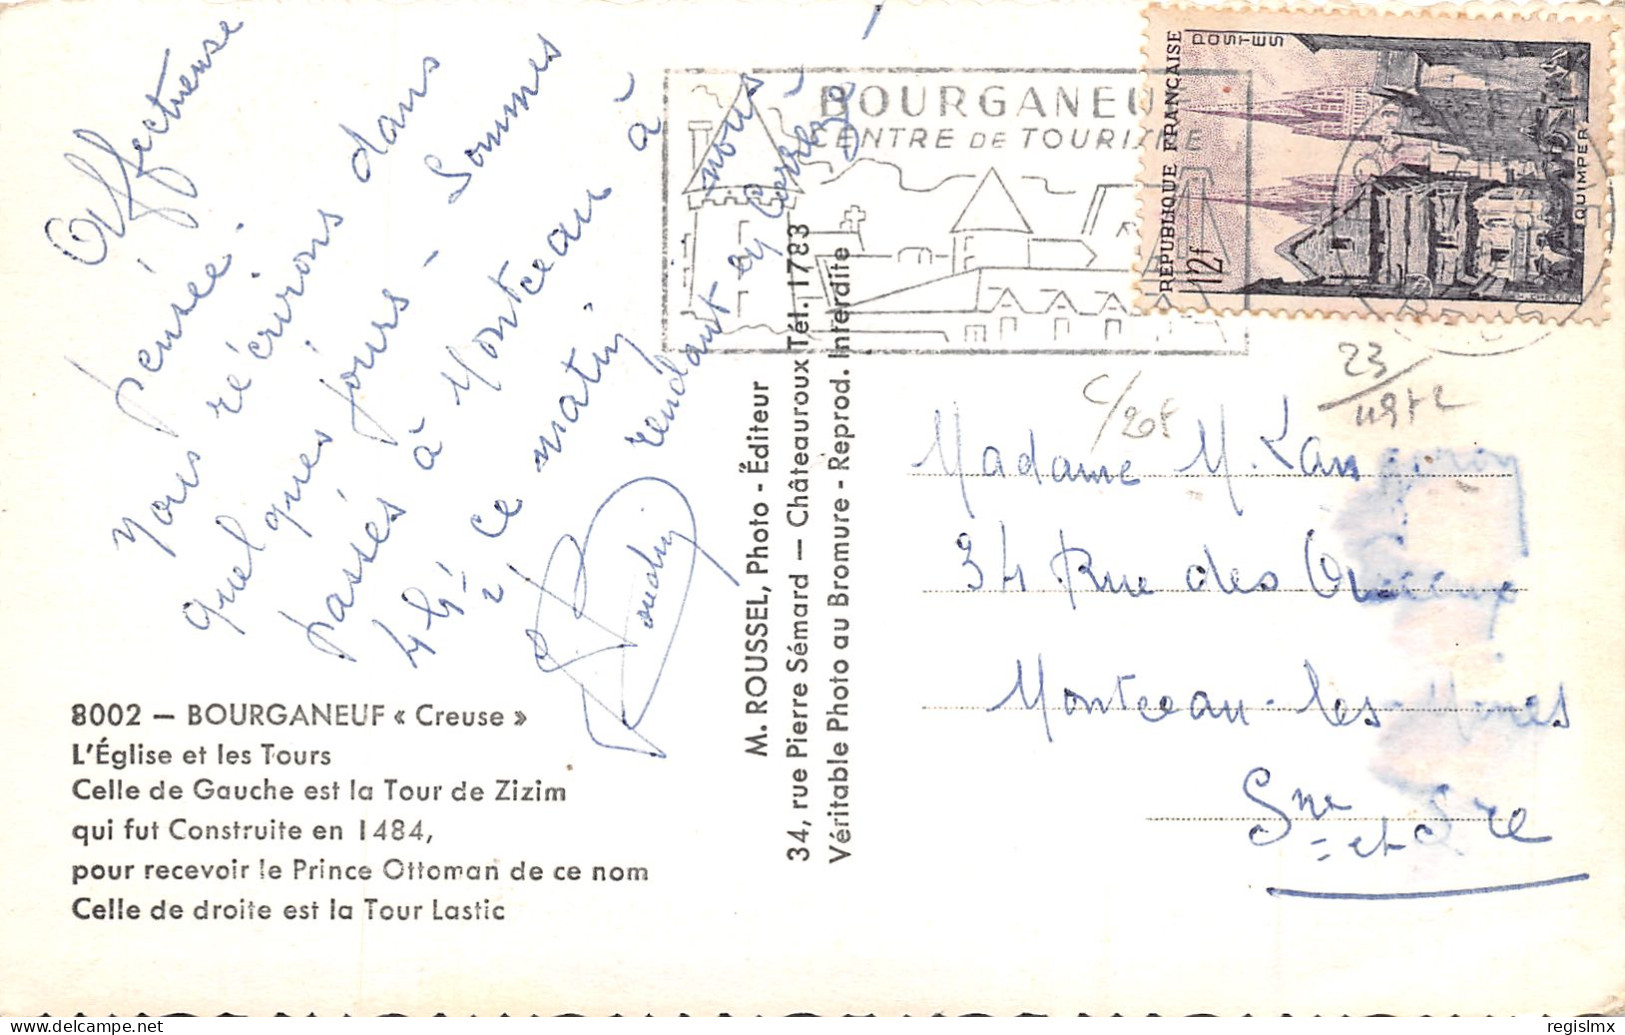 Affectueuse
pensée.
Vous récrirons dans
quelques jours - Sommes
passés à Montceau à
4h½ ce matin, nous
rendant en Corrèze
8002 — BOURGANEUF « Creuse »
L'Église et les Tours
Celle de Gauche est la Tour de Zizim
qui fut Construite en 1484,
pour recevoir le Prince Ottoman de ce nom
Celle de droite est la Tour Lastic
M. ROUSSEL, Photo - Éditeur
34, rue Pierre Sémard — Châteauroux Tél. 1783
Véritable Photo au Bromure - Reprod. Interdite
BOURGANEUF
CENTRE DE TOURISME
REPUBLIQUE FRANÇAISE
POSTES
12f
QUIMPER
23/
C/20F
Madame M.
34 Rue des
Montceau-les-Mines
Sne et Sre
www.delcampe.net
regislmx